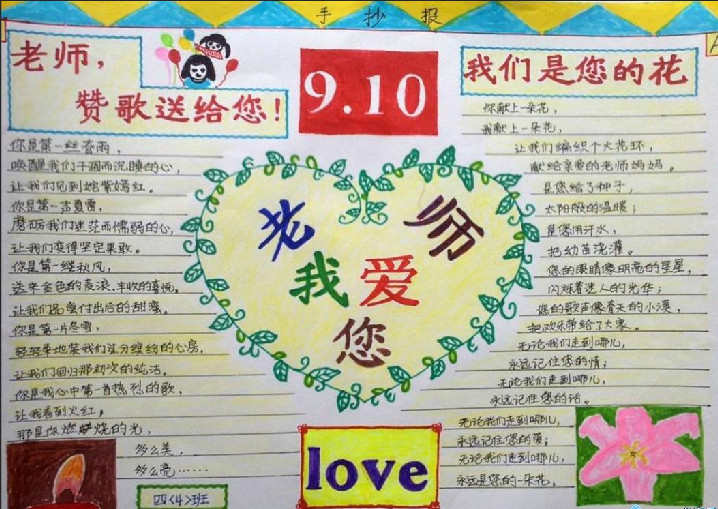 手抄报
老师，
赞歌送给您！
你是第一丝春雨，
唤醒我们干涸而沉睡的心，
让我们见到姹紫嫣红。
你是第一声夏雷，
磨砺我们迷茫而懦弱的心，
让我们变得坚定果敢。
你是第一缕秋风，
送来金色的麦浪、丰收的喜悦，
让我们品尝付出后的甜蜜。
你是第一片冬雪，
轻轻地装我们缤纷的心房，
让我们回归那初次的纯洁，
你是我心中第一首热烈的歌，
让我看到火红，
那是你燃烧的光，
多么美，
多么亮……
四〈4〉班
9.10
老师
我爱
您
love
我们是您的花
你献上一朵花，
我献上一朵花，
让我们编织个大花环，
献给亲爱的老师妈妈。
是您给了种子，
太阳般的温暖；
是您用汗水，
把幼苗浇灌。
您的眼睛像明亮的星星，
闪烁着迷人的光华；
您的歌声像春天的小溪，
把欢乐带给了大家。
无论我们走到哪儿，
永远记住您的情；
无论我们走到哪儿，
永远记住您的话。
无论我们走到哪儿，
永远记住您的
无论我们走到哪儿，
永远是您的一朵花。